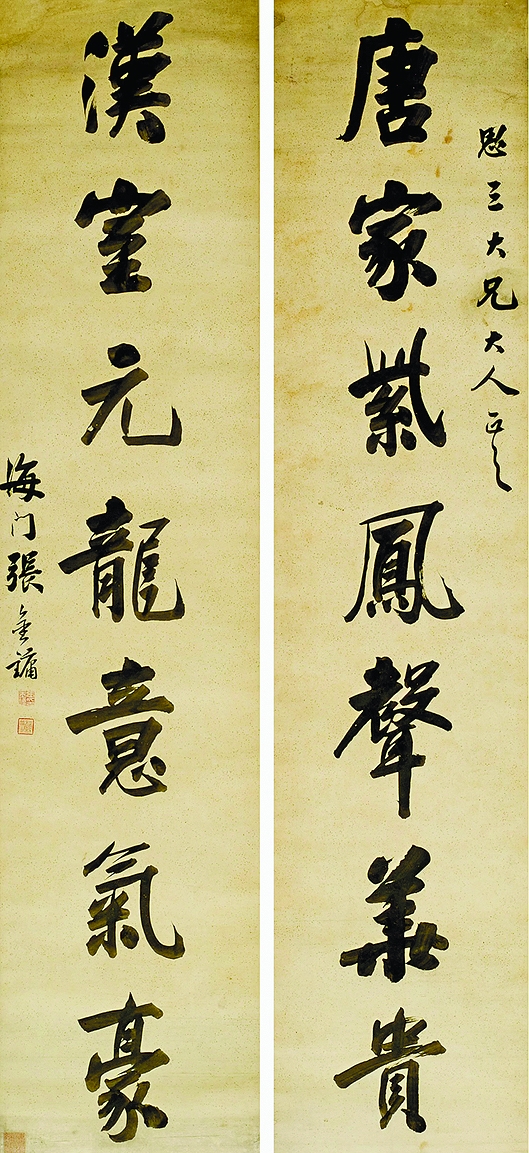 三大兄大人正之
唐家紫鳳聲華貴
漢室元龍意氣豪
海门張金鏞